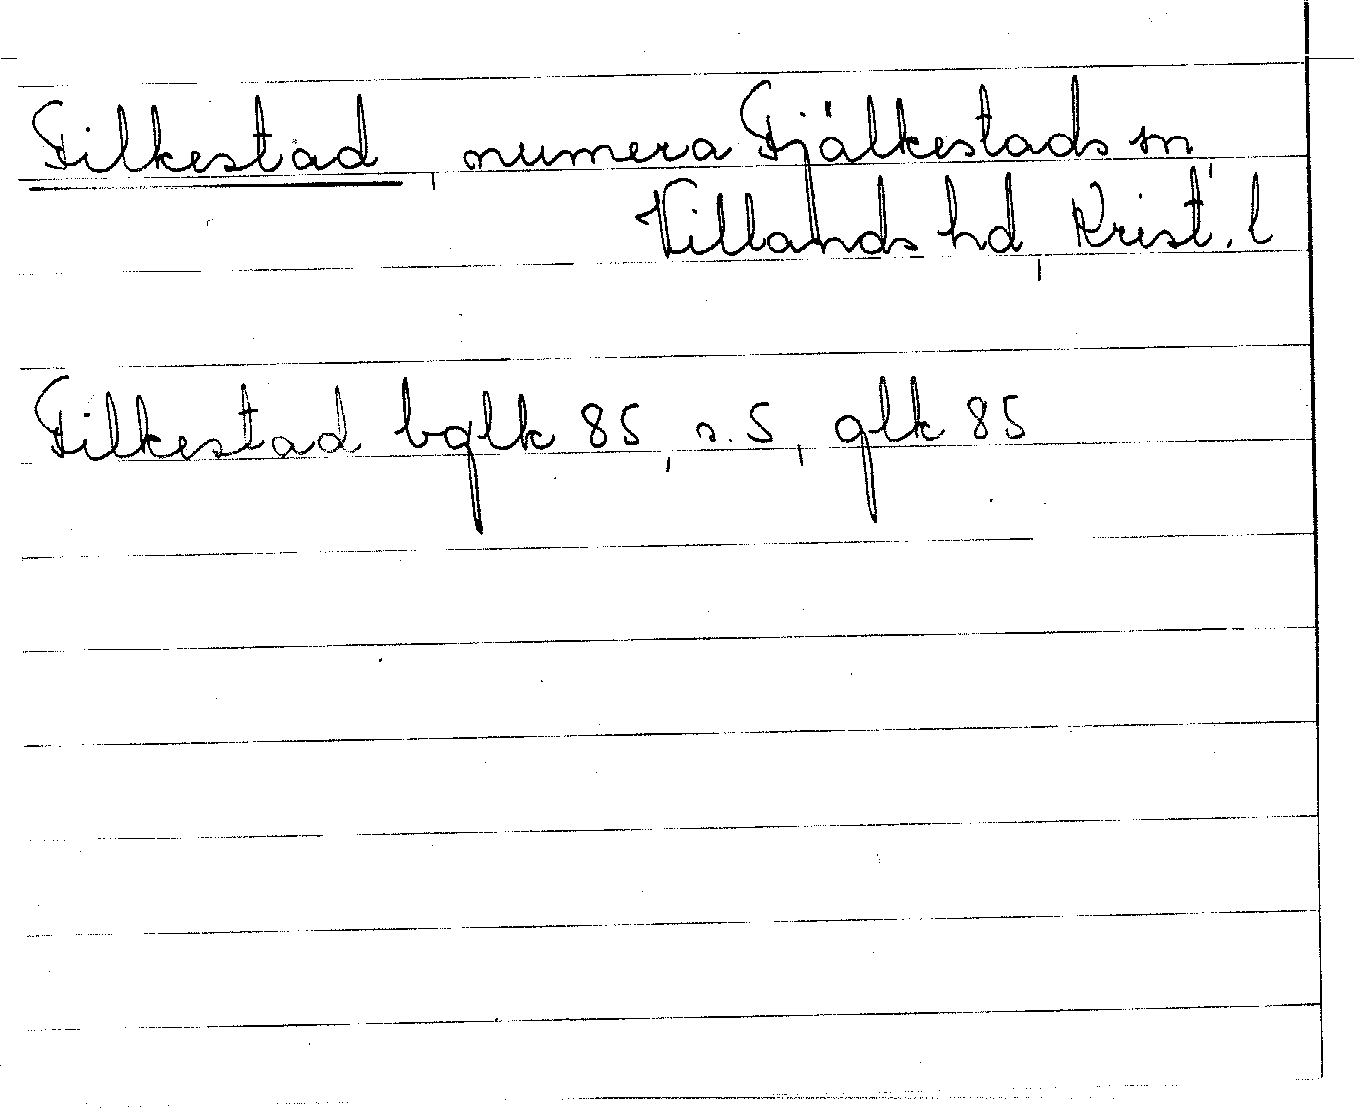 Filkestad, numera Fjälkestads sn
Villands hd, Krist. l
Filkestad bglk 85, s. 5, glk 85